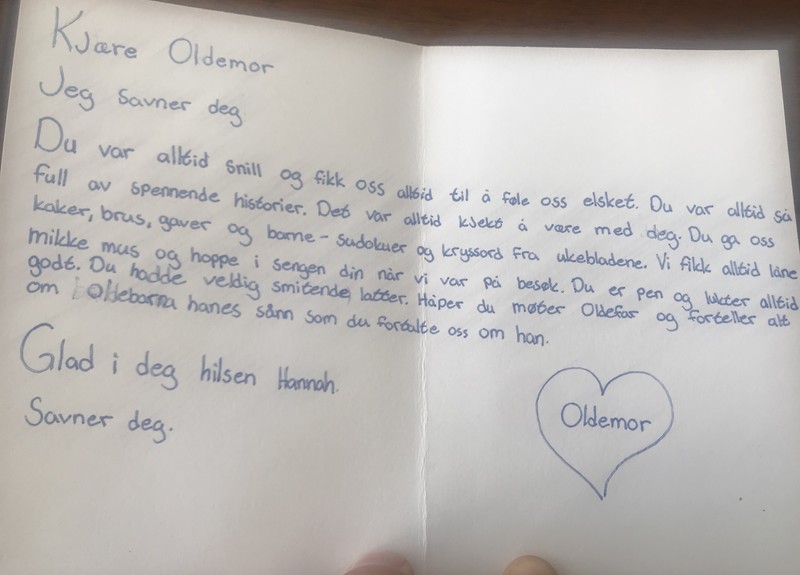 Kjære Oldemor
Jeg Savner deg
Du var alltid snill og fikk oss alltid til å føle oss elsket. Du var alltid så
full av spennende historier. Det var alltid kjekt å være med deg. Du ga oss
kaker, brus, gaver og barne-sudokuer og kryssord fra ukebladene. Vi fikk alltid låne
mikke mus og hoppe i sengen din når vi var på besøk. Du er pen og lukter alltid
godt. Du hadde veldig smitende latter. Håper du møter Oldefar og forteller alt
om oldebarna hanes sånn som du fortalte oss om han.
Glad i deg hilsen Hannah.
Savner deg.
Oldemor